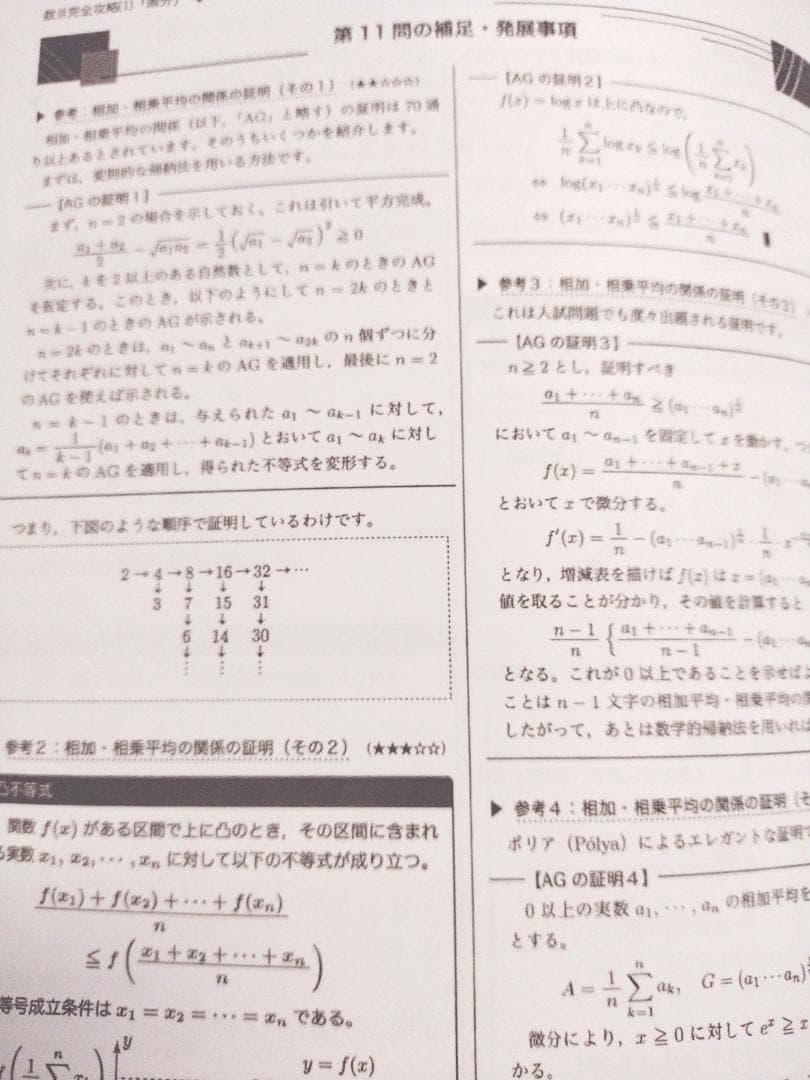 数Ⅲ完全攻略(1)「微分」
第11問の補足・発展事項
▶ 参考：相加・相乗平均の関係の証明（その1）（★★☆☆☆）
相加・相乗平均の関係（以下，「AG」と略す）の証明は70通
り以上あるとされています。そのうちいくつかを紹介します。
まずは，変則的な帰納法を用いる方法です。
【AGの証明1】
まず，n＝2の場合を示しておく。これは引いて平方完成。
(a₁＋a₂)/2 − √(a₁a₂) ＝ 1/2(√a₁ − √a₂)² ≧ 0
次に，kを2以上のある自然数として，n＝kのときのAG
を仮定する。このとき，以下のようにしてn＝2kのときと
n＝k−1のときのAGが示される。
n＝2kのときは，a₁〜aₙとaₖ₊₁〜a₂ₖのn個ずつに分
けてそれぞれに対してn＝kのAGを適用し，最後にn＝2
のAGを使えば示される。
n＝k−1のときは，与えられたa₁〜aₖ₋₁に対して，
aₖ＝1/(k−1)(a₁＋a₂＋⋯＋aₖ₋₁)とおいてa₁〜aₖに対し
てn＝kのAGを適用し，得られた不等式を変形する。
つまり，下図のような順序で証明しているわけです。
2→4→8→16→32→⋯
↓ ↓ ↓ ↓
3 7 15 31
↓ ↓ ↓
6 14 30
↓ ↓ ↓
⋮ ⋮ ⋮
参考2：相加・相乗平均の関係の証明（その2）（★★★☆☆）
凸不等式
関数f(x)がある区間で上に凸のとき，その区間に含まれ
る実数x₁, x₂, ⋯, xₙに対して以下の不等式が成り立つ。
(f(x₁)＋f(x₂)＋⋯＋f(xₙ))/n
≦ f((x₁＋x₂＋⋯＋xₙ)/n)
等号成立条件はx₁＝x₂＝⋯＝xₙである。
y
y＝f(x)
【AGの証明2】
f(x)＝log xは上に凸なので，
1/n Σ[k=1,n] log xₖ ≦ log(1/n Σ[k=1,n] xₖ)
⇔ log(x₁⋯xₙ)^(1/n) ≦ log (x₁＋⋯＋xₙ)/n
⇔ (x₁⋯xₙ)^(1/n) ≦ (x₁＋⋯＋xₙ)/n
▶ 参考3：相加・相乗平均の関係の証明（その3）
これは入試問題でも度々出題される証明です。
【AGの証明3】
n≧2とし，証明すべき
(a₁＋⋯＋aₙ)/n ≧ (a₁⋯aₙ)^(1/n)
においてa₁〜aₙ₋₁を固定してxを動かす。つ
f(x)＝(a₁＋⋯＋aₙ₋₁＋x)/n −(a₁
とおいてxで微分する。
f′(x)＝1/n −(a₁⋯aₙ₋₁)^(1/n)・1/n・x
となり，増減表を描けばf(x)はx＝(a₁
値を取ることが分かり，その値を計算すると
(n−1)/n {(a₁＋⋯＋aₙ₋₁)/(n−1) −(a₁
となる。これが0以上であることを示せばよ
ことはn−1文字の相加平均・相乗平均の関
したがって，あとは数学的帰納法を用いれば
▶ 参考4：相加・相乗平均の関係の証明（そ
ポリア（Pólya）によるエレガントな証明で
【AGの証明4】
0以上の実数a₁, ⋯, aₙの相加平均を
とする。
A＝1/n Σ[k=1,n] aₖ, G＝(a₁⋯aₙ)
微分により，x≧0に対してeˣ≧x
かる。